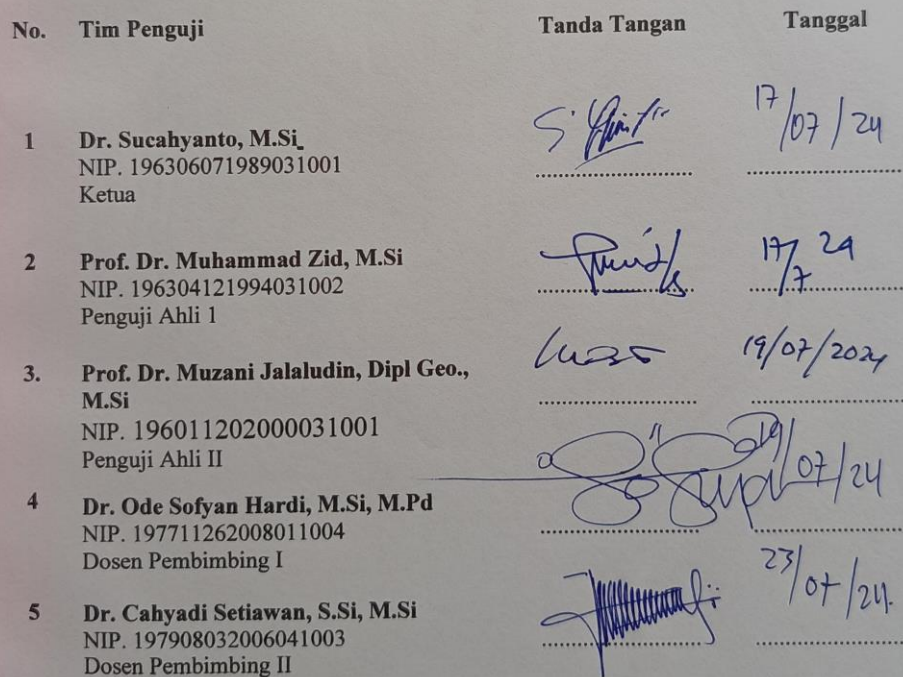 No. Tim Penguji Tanda Tangan Tanggal
1 Dr. Sucahyanto, M.Si_ 17/07/24
NIP. 196306071989031001
Ketua
2 Prof. Dr. Muhammad Zid, M.Si 17/7 24
NIP. 196304121994031002
Penguji Ahli 1
3. Prof. Dr. Muzani Jalaludin, Dipl Geo., 19/07/2024
M.Si
NIP. 196011202000031001
Penguji Ahli II
4 Dr. Ode Sofyan Hardi, M.Si, M.Pd 19/07/24
NIP. 197711262008011004
Dosen Pembimbing I
5 Dr. Cahyadi Setiawan, S.Si, M.Si 23/07/24.
NIP. 197908032006041003
Dosen Pembimbing II